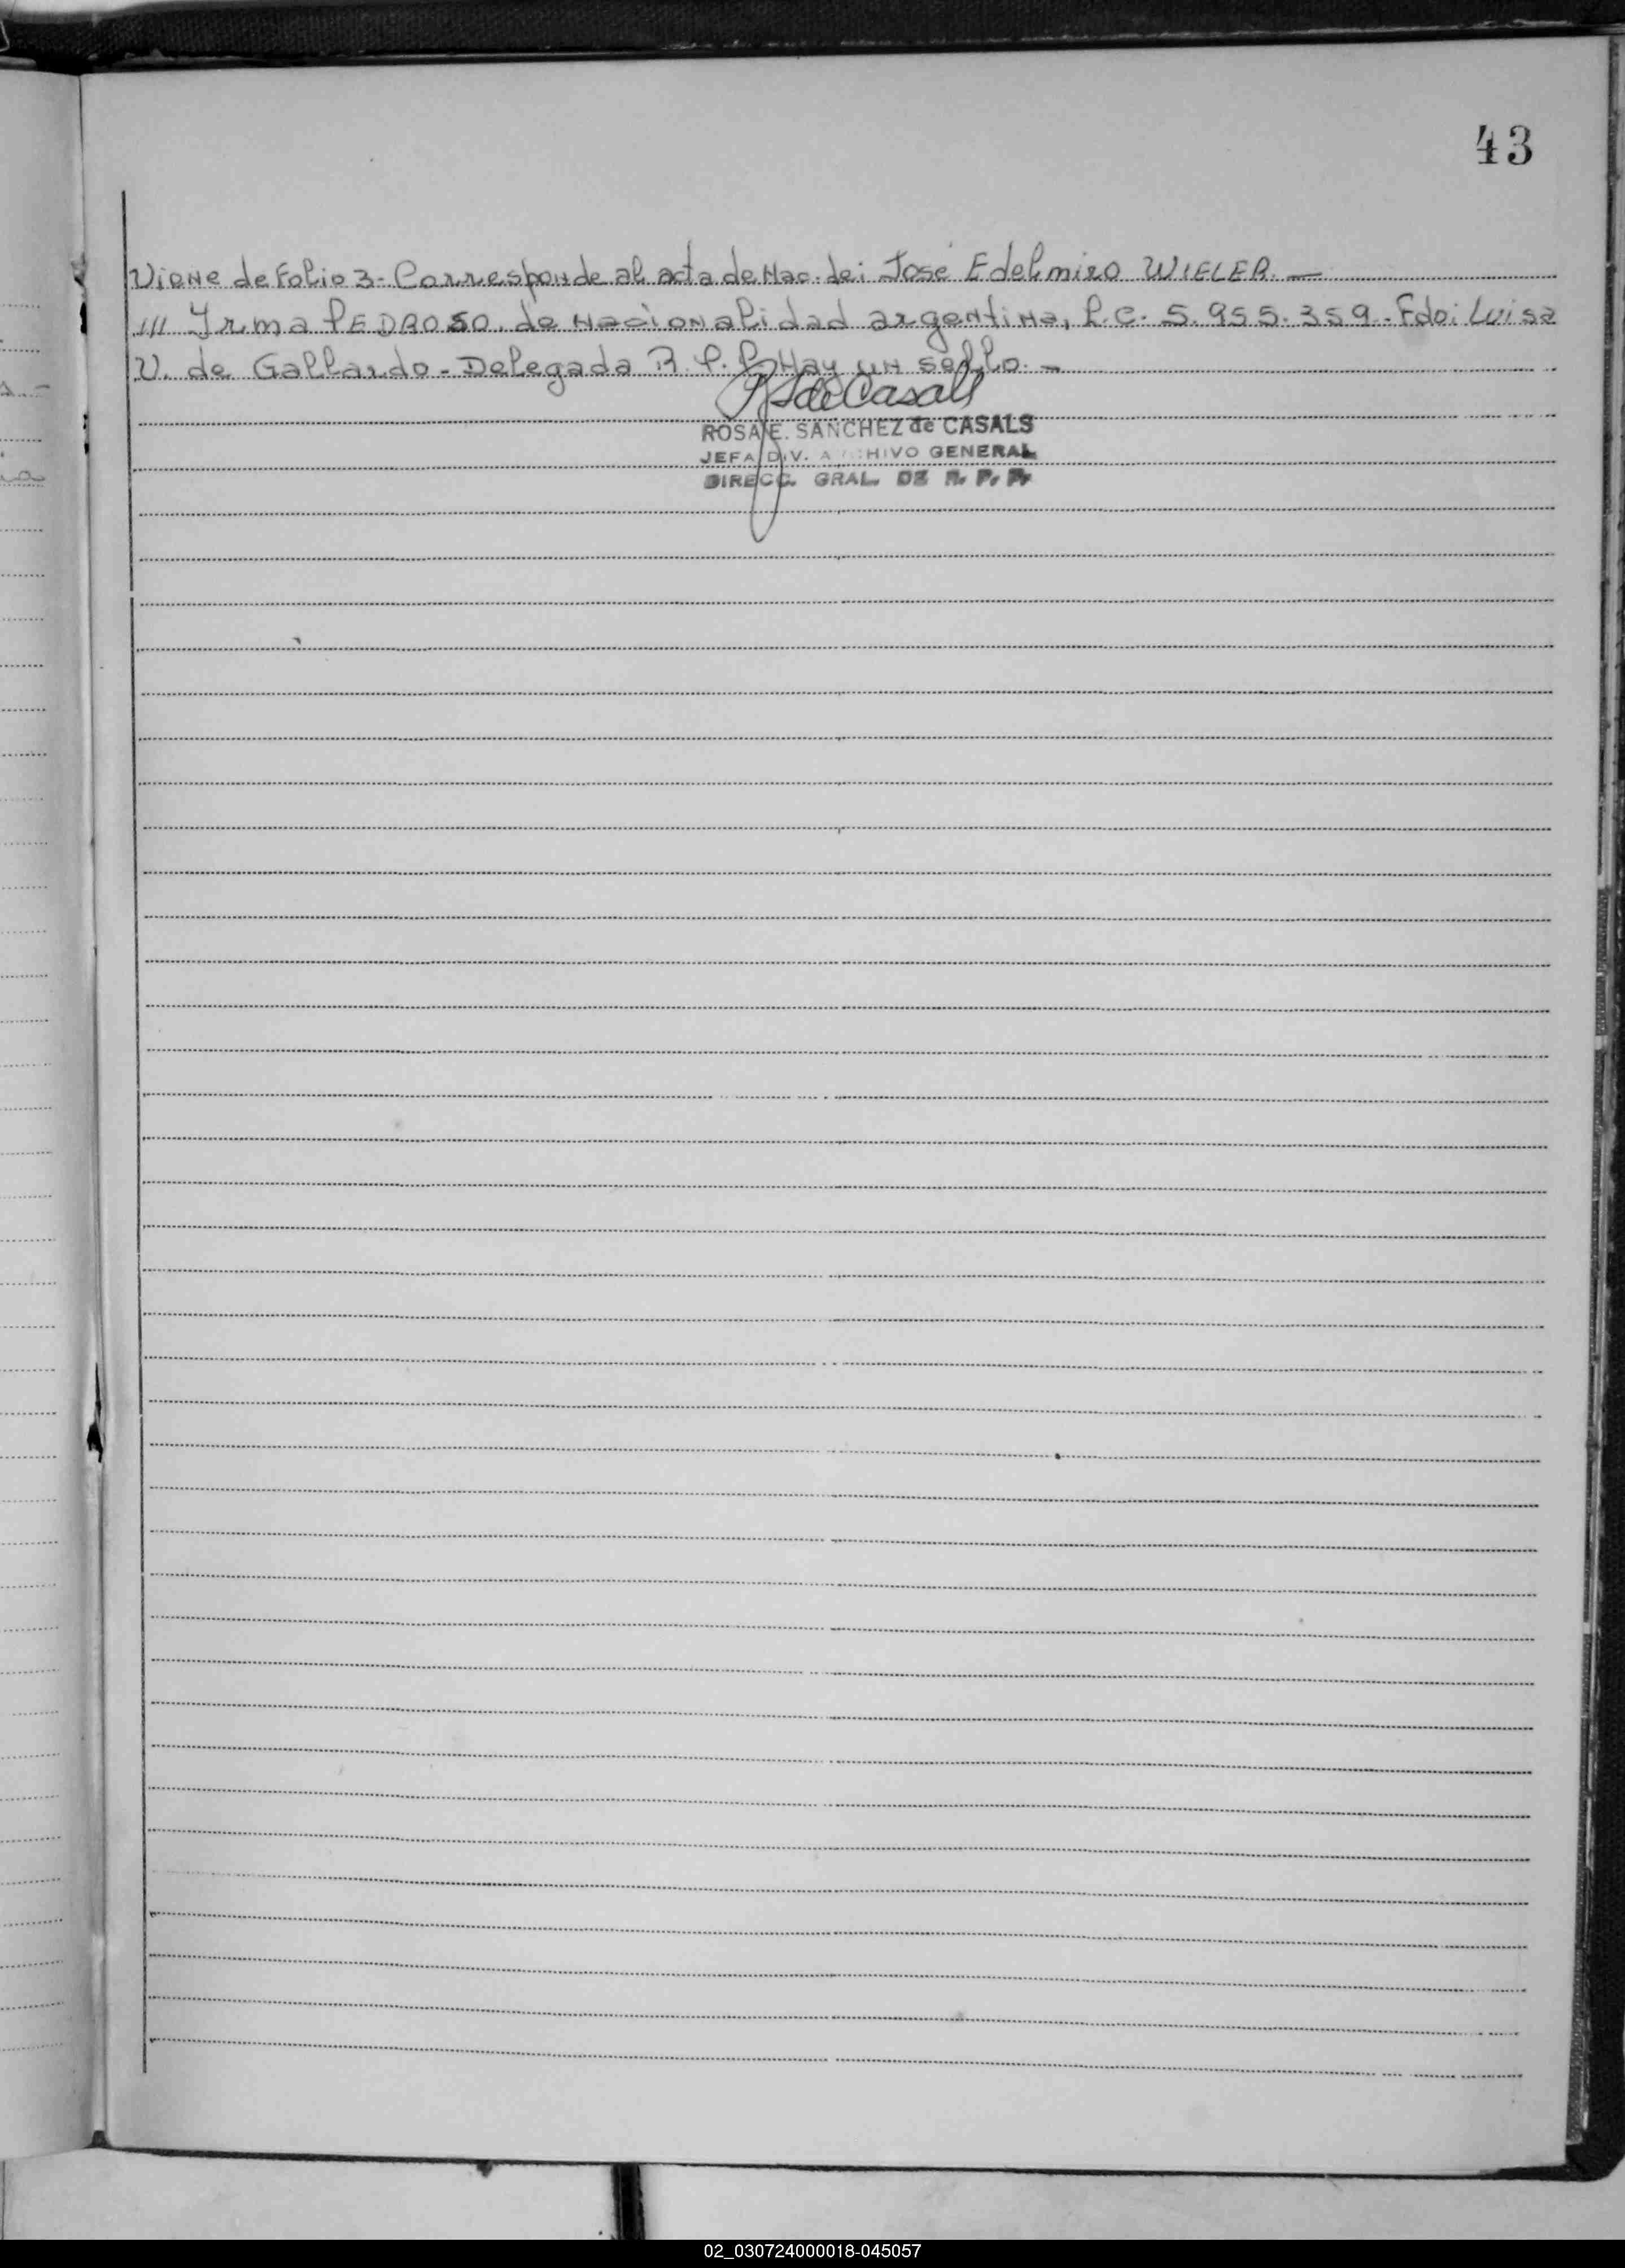 43
Viene de Folio 3- Corresponde al acta de Nac. de: José Edelmiro WIELER. —
/// Irma PEDROSO. de nacionalidad argentina, L.C. 5.955.359. Fdo: Luisa
V. de Gallardo - Delegada R.P.P. Hay un sello. -
RS de Casals
ROSA E. SANCHEZ de CASALS
JEFA DIV. ARCHIVO GENERAL
DIRECC. GRAL. DE R. P. P.
02_030724000018-045057